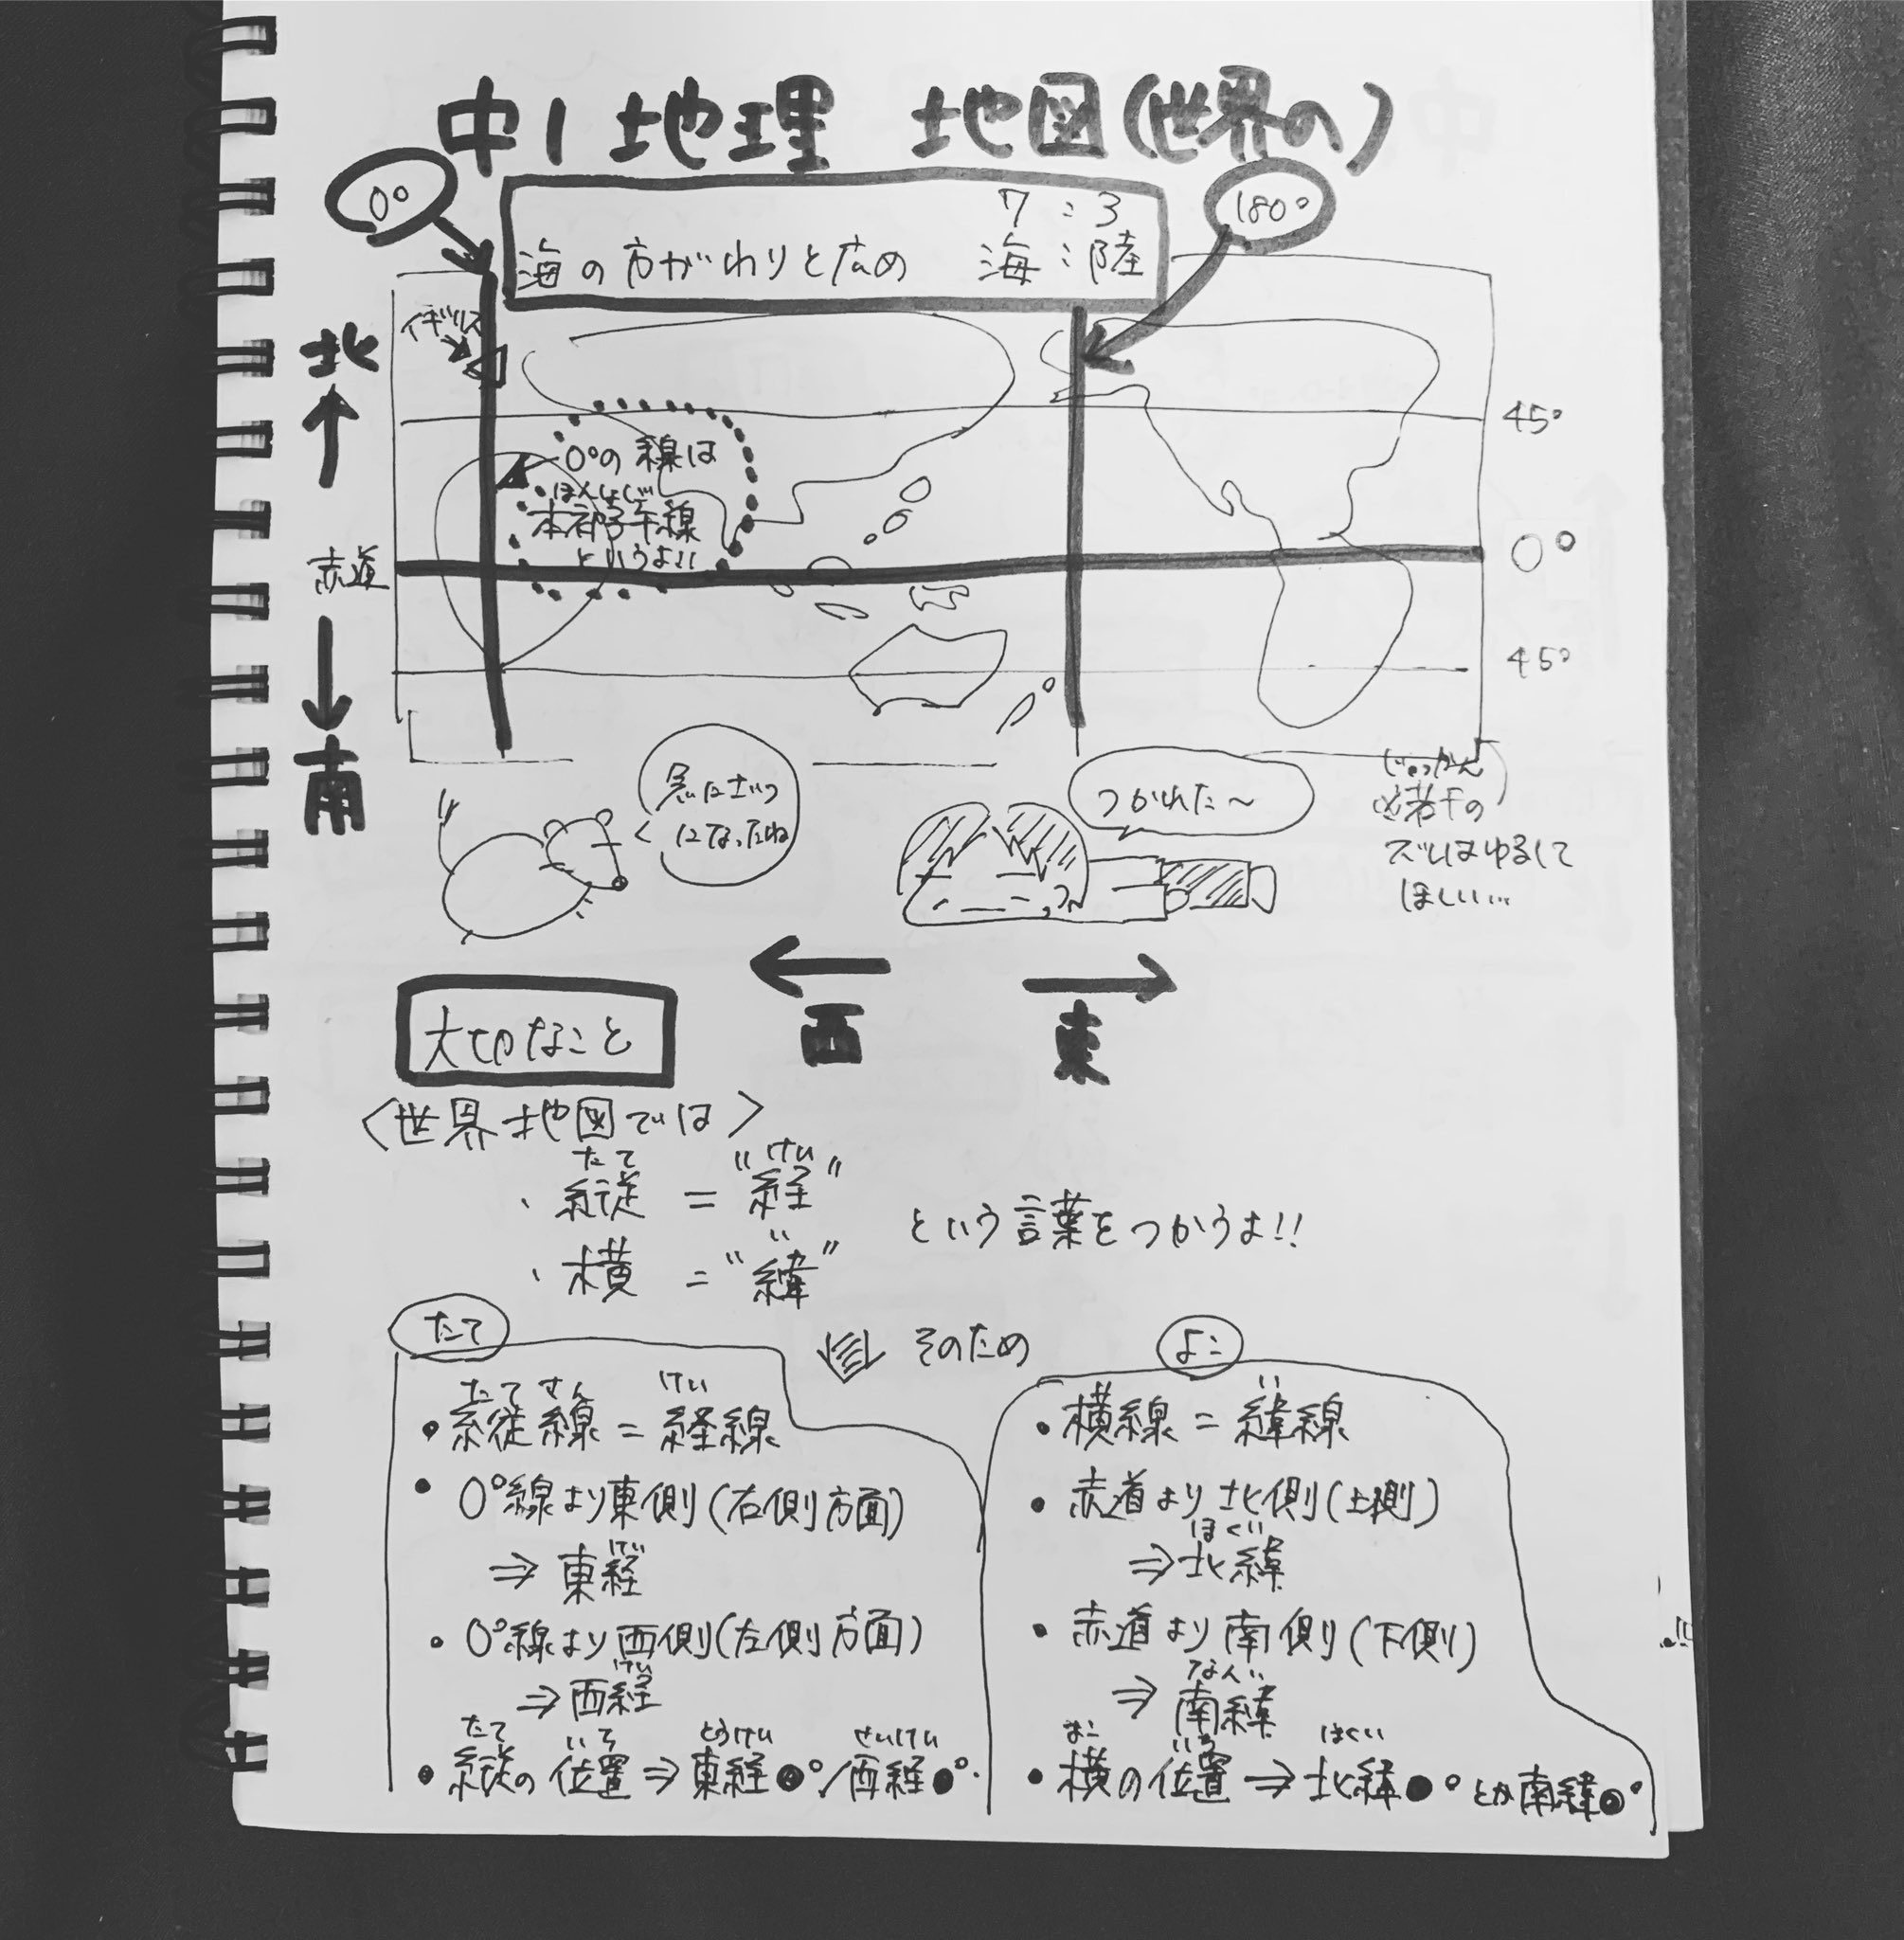 中1 地理 地図(世界の)
0°
7:3
海の方がわりと広め 海:陸
180°
イギリス
北
45°
0°の線は
ほんしょし
本初子午線
というよ!!
赤道
0°
45°
南
急にざつ
になったね
つかれた〜
じゃっかん
※若干の
ズレはゆるして
ほしい…
西
東
大切なこと
〈世界地図では〉
たて けい
・縦 = "経"
という言葉をつかうよ!!
い
・横 = "緯"
そのため
たて
たてせん けい
・縦線 = 経線
・0°線より東側(右側方面)
けい
⇒ 東経
・0°線より西側(左側方面)
けい
⇒ 西経
たて いち とうけい せいけい
・縦の位置⇒東経●°/西経●°.
よこ
い
・横線 = 緯線
・赤道より北側(上側)
ほくい
⇒北緯
・赤道より南側(下側)
なんい
⇒ 南緯
よこ いち ほくい
・横の位置⇒北緯●°とか南緯●°